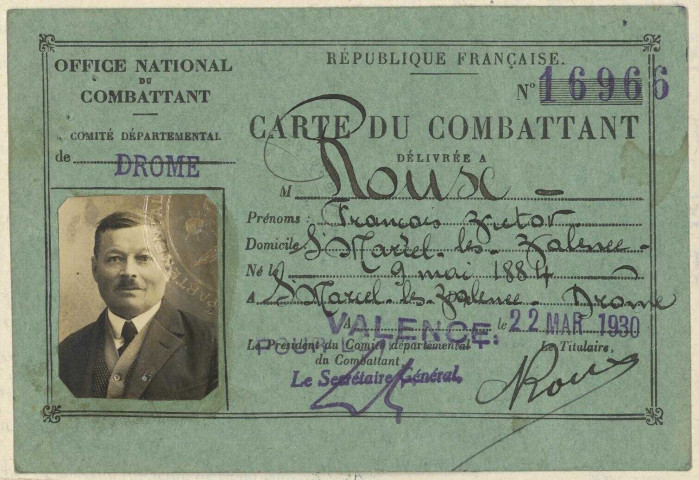 OFFICE NATIONAL
DU
COMBATTANT
COMITÉ DÉPARTEMENTAL
de DROME
RÉPUBLIQUE FRANÇAISE.
N° 16966
CARTE DU COMBATTANT
DÉLIVRÉE A
M Roux -
Prénoms : François Victor
Domicile St Marcel-les-Valence-
Né le 9 mai 1884
A St Marcel-les-Valence- Drome
A VALENCE. le 22 MAR 1930
POUR
Le Président du Comité départemental
du Combattant
Le Secrétaire Général
Le Titulaire,
Roux